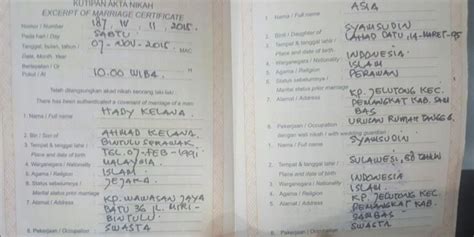 KUTIPAN AKTA NIKAH
EXCERPT OF MARRIAGE CERTIFICATE
187 / 11 / 2015
Pada hari / Day SABTU
Tanggal, bulan, tahun / 07-NOV-2015 MAC
Date, Month, Year
Bertepatan / Or
Pukul / At 10.00 WIBA.
Telah dilangsungkan akad nikah seorang laki-laki :
There has been authenticated a covenant of marriage of a men
1. Nama / Full name HADY KELANA
2. Bin / Son of AHMAD KELANA
3. Tempat & tanggal lahir / BINTULU SERAWAK
Place and date of birth TGL. 07-FEB-1991
4. Warganegara / Nationality MALAYSIA
5. Agama / Religion ISLAM
6. Status sebelumnya / JEJAKA
Marital status prior marriage
7. Alamat / Address KP. WAWASAN JAYA
BATU 36 JL. MIRI-
BINTULU
8. Pekerjaan / Occupation SWASTA
ASIA
1. Nama / Full name
2. Binti / Daughter of SYAMSUDIN
3. Tempat & tanggal lahir / LAHAD DATU, 14-MARET-95
Place and date of birth
4. Warganegara / Nationality INDONESIA
5. Agama / Religion ISLAM
6. Status sebelumnya / PERAWAN
Marital status prior marriage
7. Alamat / Address KP. JELUTONG KEC.
PEMANGKAT KAB. SAM
BAS
8. Pekerjaan / Occupation URUSAN RUMAH TANGGA.
dengan wali nikah / with wedding guardian :
1. Nama / Full name SYAMSUDIN
2. Tempat & tanggal lahir / SULAWESI, 58 TAHUN
Place and date of birth
3. Warganegara / Nationality INDONESIA
4. Agama / Religion ISLAM
5. Alamat / Address KP. JELUTONG KEC.
PEMANGKAT KAB.
SAMBAS
6. Pekerjaan / Occupation SWASTA